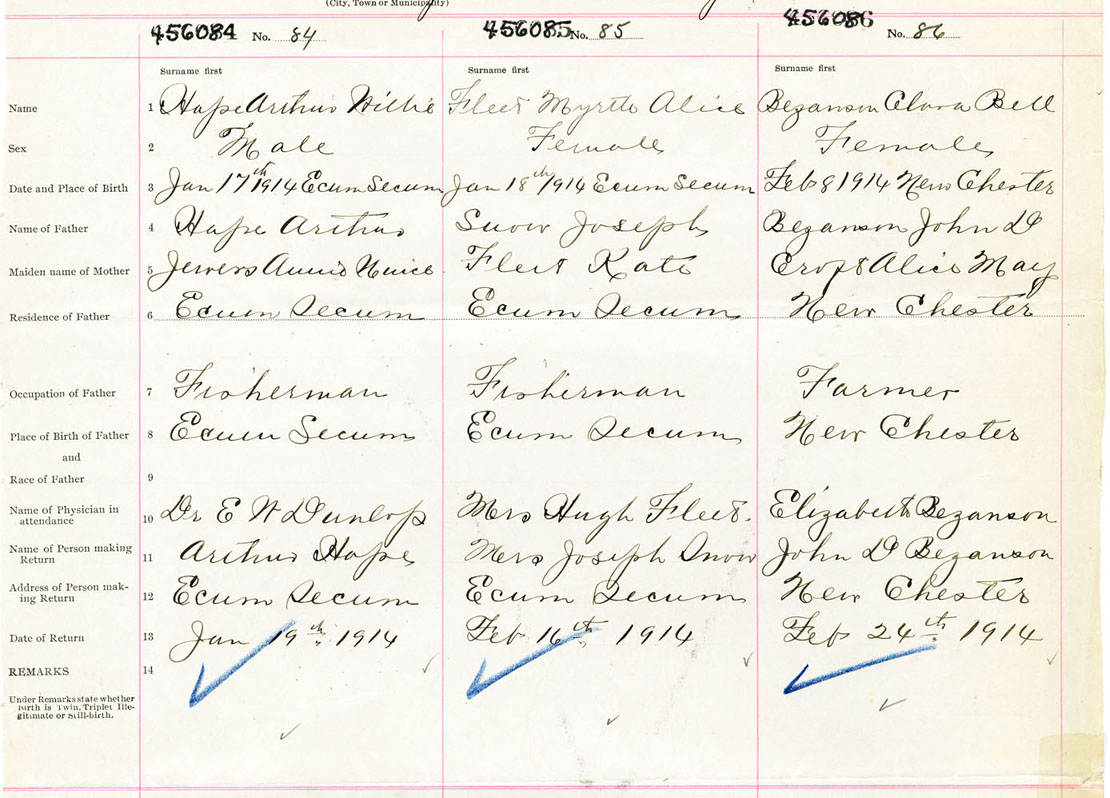 (City, Town or Municipality)
456084 No. 84 456085 No. 85 456086 No. 86
Surname first Surname first Surname first
Name 1 Hope Arthur Willie Fleet Myrtle Alice Bezanson Clara Bell
Sex 2 Male Female Female
Date and Place of Birth 3 Jan 17th 1914 Ecum Secum Jan 18th 1914 Ecum Secum Feb 8 1914 New Chester
Name of Father 4 Hope Arthur Snow Joseph Bezanson John D
Maiden name of Mother 5 Jewers Annie Fleet Kate Croft Alice May
Residence of Father 6 Ecum Secum Ecum Secum New Chester
Occupation of Father 7 Fisherman Fisherman Farmer
Place of Birth of Father 8 Ecum Secum Ecum Secum New Chester
and
Race of Father 9
Name of Physician in
attendance 10 Dr E W Dunlop Mrs Hugh Fleet. Elizabeth Bezanson
Name of Person making
Return 11 Arthur Hope Mrs Joseph Snow John D Bezanson
Address of Person mak-
ing Return 12 Ecum Secum Ecum Secum New Chester
Date of Return 13 Jan 19th 1914 Feb 16th 1914 Feb 24th 1914
REMARKS 14
Under Remarks state whether
birth is Twin, Triplet Ille-
gitimate or Still-birth.